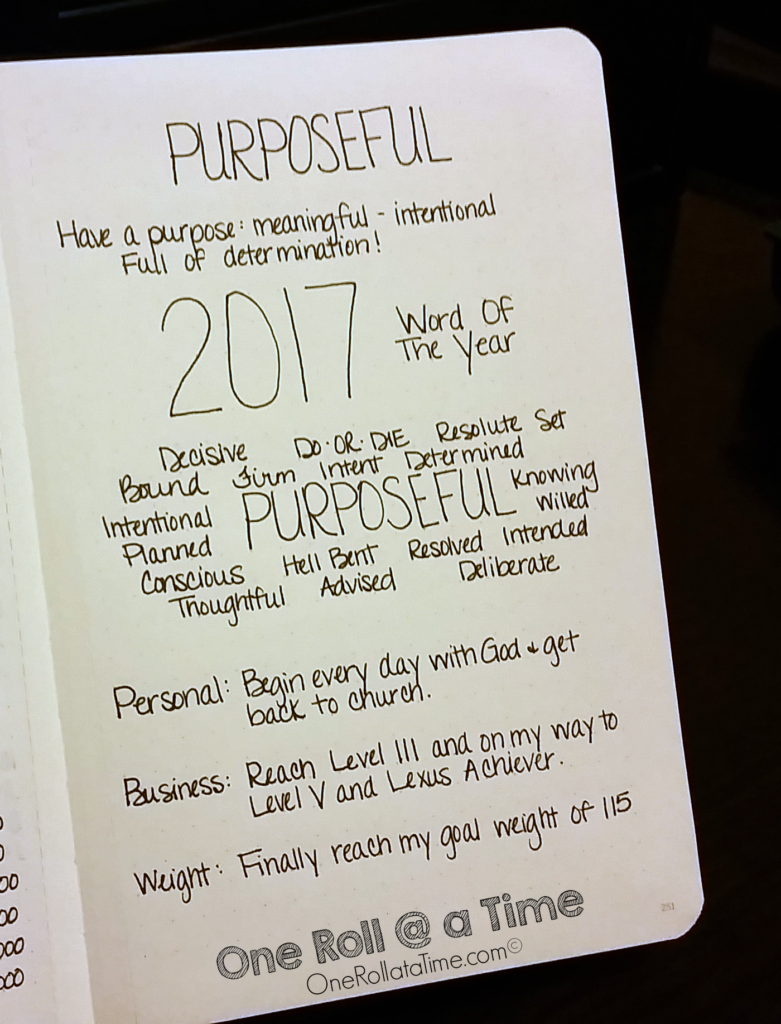 PURPOSEFUL
Have a purpose: meaningful - intentional
Full of determination!
2017 Word Of
The Year
Decisive DO·OR·DIE Resolute Set
Bound Firm Intent Determined
Intentional PURPOSEFUL Knowing
Planned Willed
Conscious Hell Bent Resolved Intended
Thoughtful Advised Deliberate
Personal: Begin every day with God & get
back to church.
Business: Reach Level III and on my way to
Level V and Lexus Achiever.
Weight: Finally reach my goal weight of 115
251
One Roll @ a Time
OneRollataTime.com©
0
0
00
00
000
000